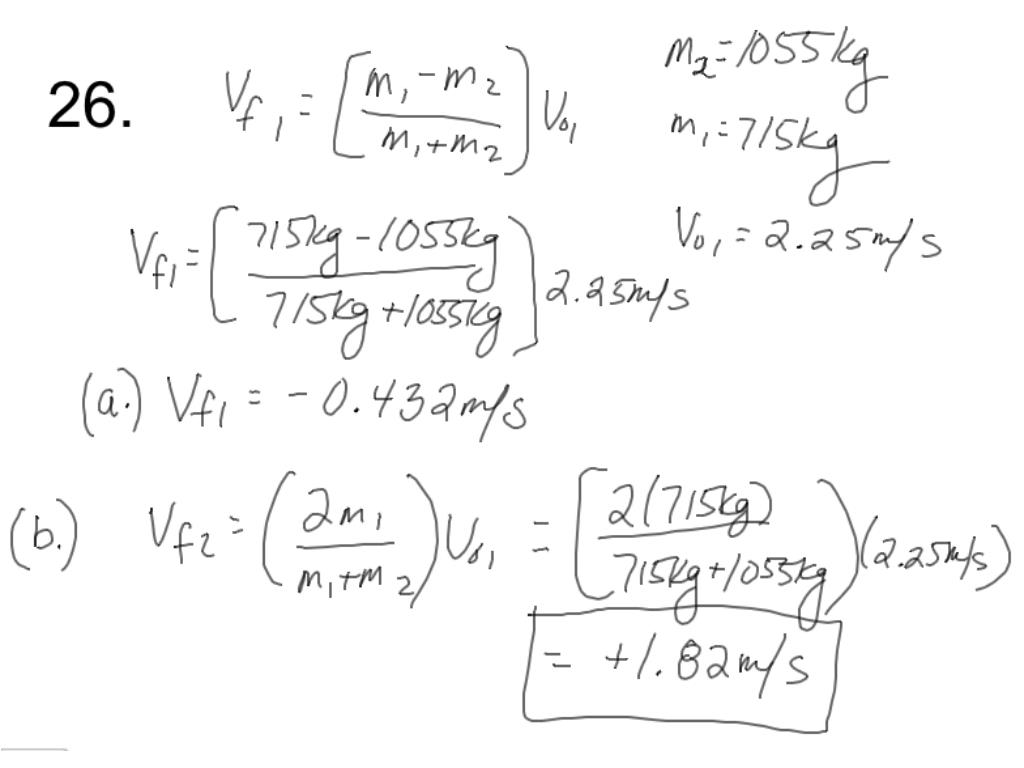 26. Vf₁ = [(m₁-m₂)/(m₁+m₂)] V₀₁
m₂=1055kg
m₁=715kg
V₀₁=2.25m/s
Vf₁=[(715kg-1055kg)/(715kg+1055kg)] 2.25m/s
(a.) Vf₁ = -0.432m/s
(b.) Vf₂=(2m₁/(m₁+m₂))V₀₁ = [2(715kg)/(715kg+1055kg)](2.25m/s)
= +1.82m/s